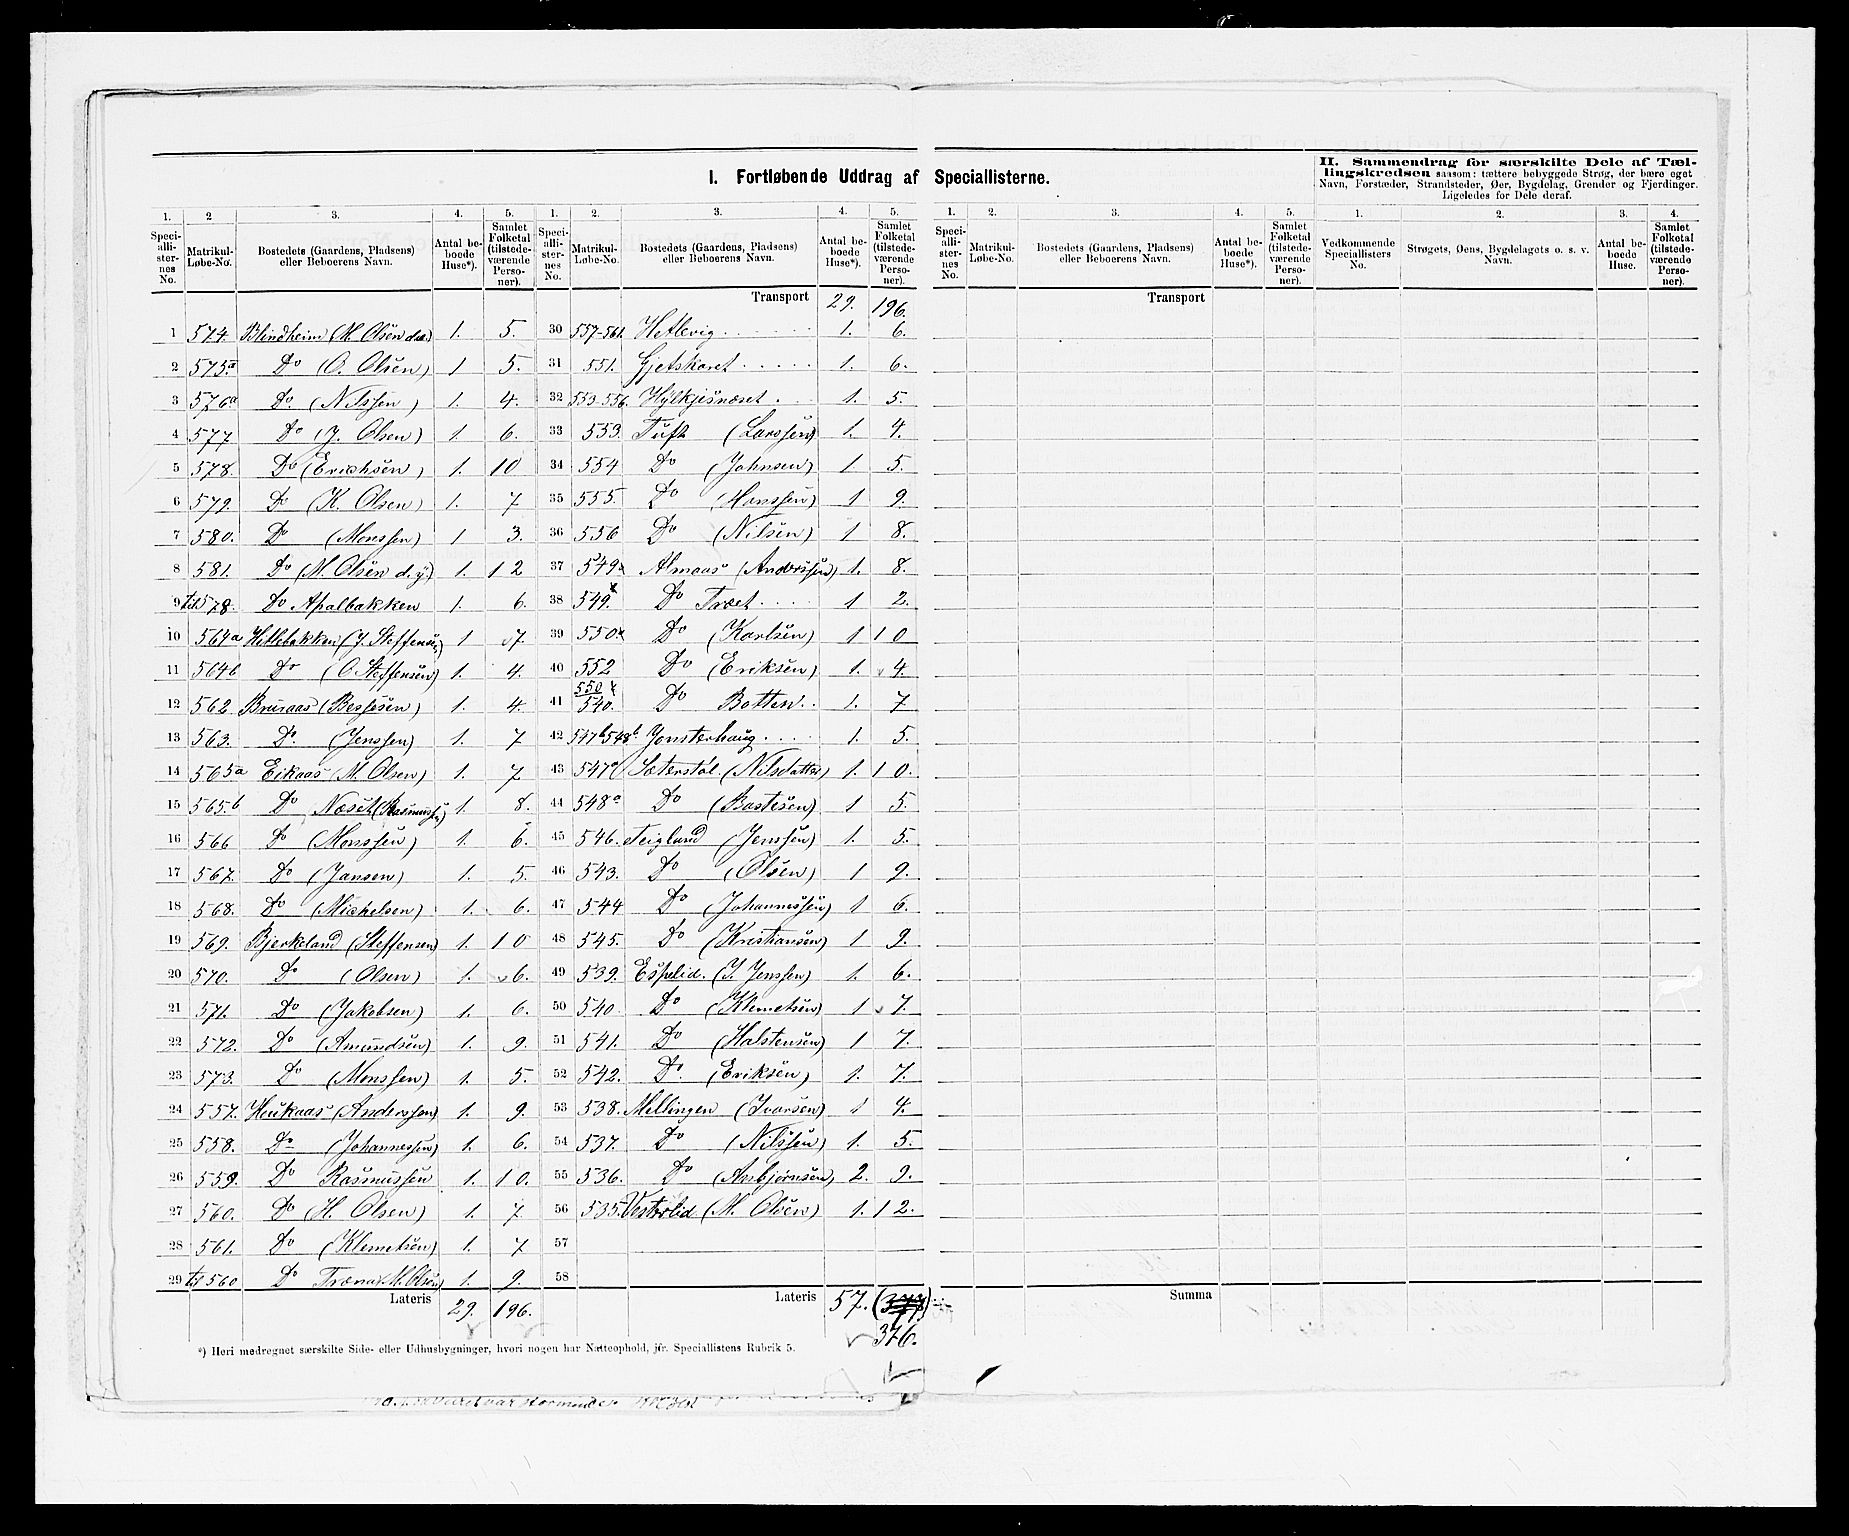 I. Fortløbende Uddrag af Speciallisterne.
II. Sammendrag for særskilte Dele af Tællingskredsen saasom: tættere bebyggede Strøg, der bære eget
Navn, Forstæder, Strandsteder, Øer, Bygdelag, Grender og Fjerdinger.
Ligeledes for Dele deraf.
1. 2 3. 4. 5.
Speciallisternes No. Matrikul-Løbe-No. Bostedets (Gaardens, Pladsens) eller Beboerens Navn. Antal beboede Huse*). Samlet Folketal (tilstedeværende Personer).
1 574. Blindheim (M. Olsen d.æ.) 1. 5.
2 575.a Do (O. Olsen) 1 5.
3 576a Do. (Nilssen) 1. 4.
4 577 Do (J. Olsen) 1. 6.
5 578. Do (Erichsen) 1. 10
6 579. Do (K. Olsen) 1. 7
7 580. Do (Monssen) 1 3.
8 581. Do (M. Olsen d.y.) 1. 12
9 til 578. Do Apalbakken 1. 6.
10 564a Hetlebakken (J. Steffensen) 1 7.
11 564b Do (O. Steffensen) 1. 4.
12 562 Bruraas (Bessesen) 1. 4.
13 563. Do. (Jenssen) 1. 7
14 565a Eikaas (M. Olsen) 1. 7
15 565b Do Næset (Rasmussen) 1. 8.
16 566 Do (Monssen) 1. 6.
17 567. Do (Jansen) 1. 5.
18 568. Do (Mickelsen) 1. 6.
19 569. Bjerkeland (Steffensen) 1. 10
20 570. Do (Olsen) 1. 6.
21 571. Do (Jakobsen) 1. 6.
22 572. Do (Amundsen) 1. 9.
23 573. Do (Monssen) 1. 5.
24 557. Haukaas (Anderssen) 1. 9.
25 558. Do (Johannessen) 1. 6.
26 559. Do Rasmussen 1. 10.
27 560. Do (H. Olsen) 1. 7
28 561. Do (Klemetsen) 1. 7
29 til 560 Do Træna (M. Olsen) 1. 9.
Lateris 29. 196.
1. 2. 3. 4. 5.
Speciallisternes No. Matrikul-Løbe-No. Bostedets (Gaardens, Pladsens) eller Beboerens Navn. Antal beboede Huse*). Samlet Folketal (tilstedeværende Personer).
Transport 29. 196.
30 557-561. Hetlevig 1. 6.
31 551. Gjetskaret 1. 6.
32 553-556. Hylkjesnæset 1. 5.
33 553. Tuft (Larssen) 1. 4.
34 554 Do (Johnsen) 1. 5.
35 555. Do (Hanssen) 1 9.
36 556 Do (Nilsen) 1 8.
37 549a Almaas (Anderssen) 1. 8.
38 549. Do Træet 1 2.
39 550. Do (Karlsen) 1 10
40 552 Do (Eriksen) 1. 4.
41 550 540. Do Botten 1. 7
42 547b 548b Jonsterhaug 1. 5.
43 547a Sæterstøl. (Nilsdatter) 1. 10.
44 548a Do (Bastesen) 1 5.
45 546. Teigland (Jenssen) 1. 5.
46 543. Do (Olsen) 1 9.
47 544 Do (Johannessen) 1 6.
48 545. Do (Kristiansen) 1 9.
49 539. Espelid. (J. Jenssen) 1. 6.
50 540. Do (Klemetsen) 1 7.
51 541. Do (Halstensen) 1 7.
52 542. Do. (Eriksen) 1. 7.
53 538. Mellingen (Ivarsen) 1 4.
54 537. Do (Nilssen) 1. 5.
55 536. Do (Asbjørnsen) 2. 9.
56 535. Vesterlid (M. Olsen) 1. 12.
57
58
Lateris 57. (377)
376.
*) Heri medregnet særskilte Side- eller Udhusbygninger, hvori nogen har Natteophold, jfr. Speciallistens Rubrik 5.
1. 2. 3. 4. 5.
Speciallisternes No. Matrikul-Løbe-No. Bostedets (Gaardens, Pladsens) eller Beboerens Navn. Antal beboede Huse*). Samlet Folketal (tilstedeværende Personer).
Transport
Summa
1. 2. 3. 4.
Vedkommende Speciallisters No. Strøgets, Øens, Bygdelagets o. s. v. Navn. Antal beboede Huse. Samlet Folketal (tilstedeværende Personer).